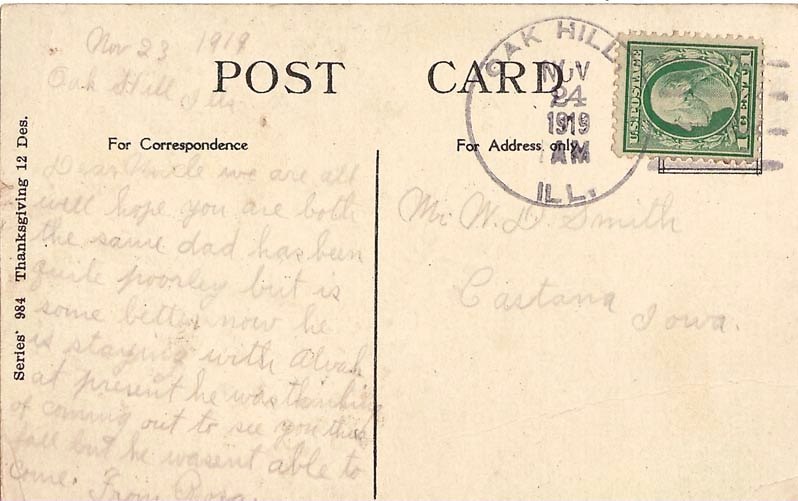 Nov 23 1919
Oak Hill Ills
POST CARD
For Correspondence
For Address only.
Series 984 Thanksgiving 12 Des.
Dear Uncle we are all
well hope you are both
the same dad has been
quite poorley but is
some better now he
is staying with Alvah
at present he was thinking
of coming out to see you this
fall but he wasent able to
come. From
OAK HILL
NOV
24
1919
AM
ILL.
U.S. POSTAGE
1 CENT 1
Mr W. D. Smith
Castana
Iowa.